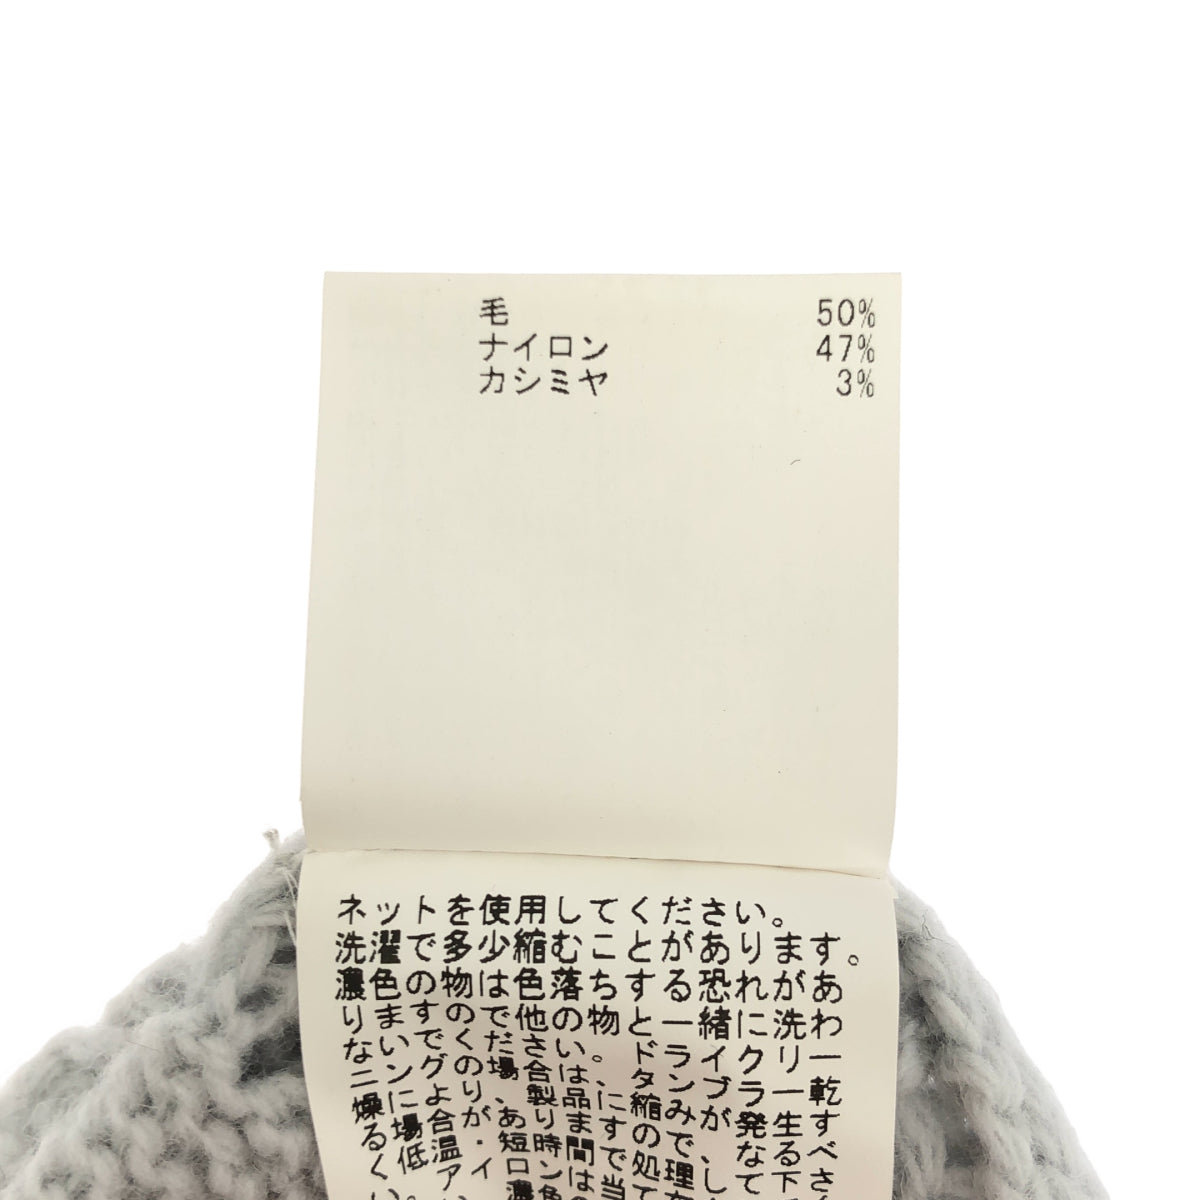 毛 50%
ナイロン 47%
カシミヤ 3%
ネットを使用してください。
洗濯で多少縮むことがあります。
濃色の物は色落ちする恐れがあ
りますので他の物と一緒に洗わ
ないでください。ドライクリー
ニングの場合は、タンブラー乾
燥により製品に縮みが発生す
る場合がありますので、なるべ
く低温・短時間で処理してくださ
い。アイロンは当て